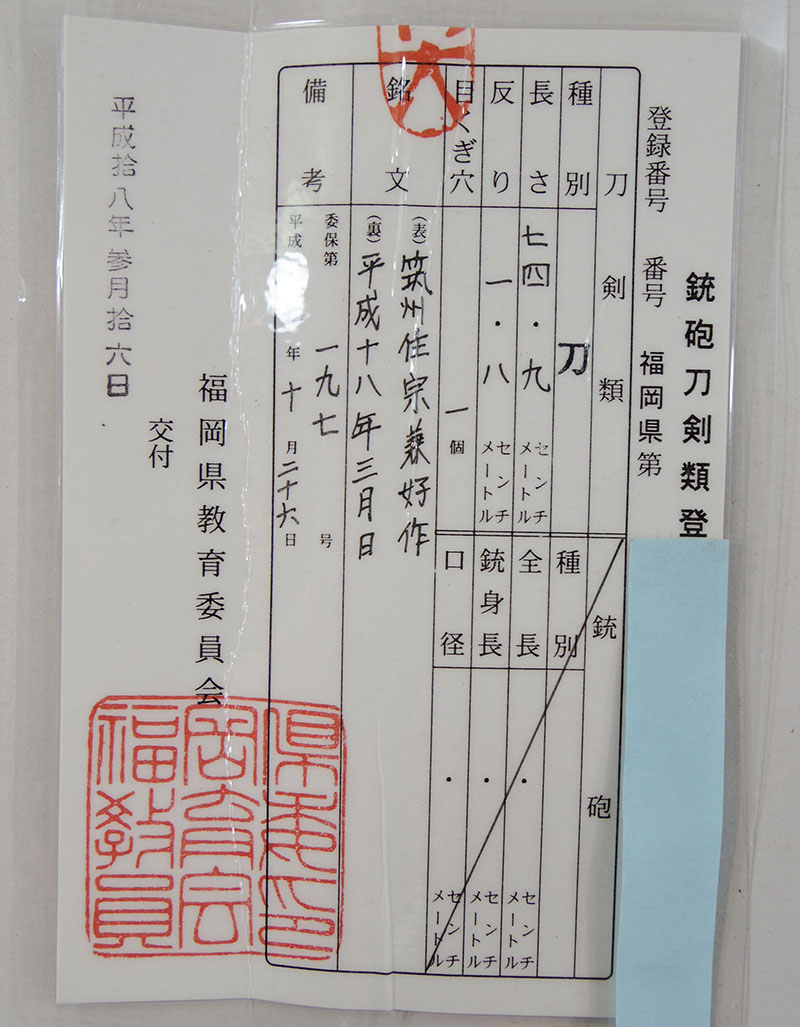 銃砲刀剣類登
登録番号 番号 福岡県第
刀剣類
種別 刀
長さ 七四・九 センチメートル
反り 一・八 センチメートル
目くぎ穴 一個
銘文
(表) 筑州住宗兼好作
(裏) 平成十八年三月日
備考
委保第一九七号
平成 年十月二十六日
銃砲
種別
全長 ・ センチメートル
銃身長 ・ センチメートル
口径 ・ センチメートル
平成拾八年参月拾六日
福岡県教育委員会
交付
福岡県教育委員会印